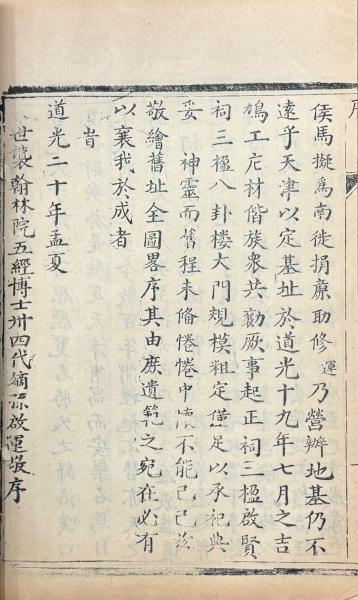 侯馬擬爲南徙捐廉助修運乃營辦地基仍不
遠乎天津以定基址於道光十九年七月之吉
鳩工庀材偕族衆共勷厥事起正祠三楹啟賢
祠三楹八卦樓大門規模粗定僅足以承祀典
妥神靈而舊程未備惓惓中懷不能已已兹
敬繪舊址全圖畧序其由庶遺範之宛在必有
以襄我於成者
昔
道光二十年孟夏
世襲翰林院五經博士卅四代嫡孫啟運敬序